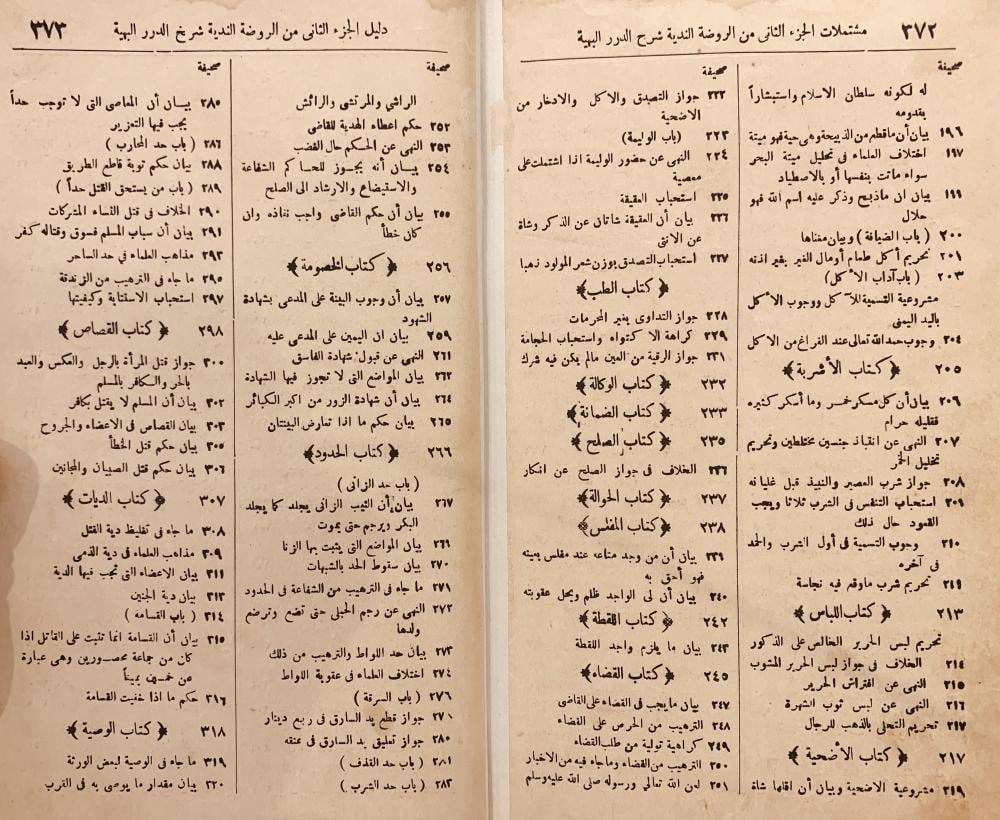 ٣٧٢ مشتملات الجزء الثانى من الروضة الندية شرح الدرر البهية
صحيفة
له لكونه سلطان الاسلام واستبشاراً
بقدومه
١٩٦ بيان أن ماقطع من الذبيحة وهى حية فهو ميتة
١٩٧ اختلاف العلماء فى تحليل ميتة البحر
سواء ماتت بنفسها أو بالاصطياد
١٩٩ بيان ان ماذبح وذكر عليه اسم الله فهو
حلال
٢٠٠ ( باب الضيافة ) وبيان معناها
٢٠١ تحريم أكل طعام أومال الغير بغير اذنه
٢٠٣ ( باب آداب الأكل )
مشروعية التسمية للآكل ووجوب الأكل
باليد اليمنى
٢٠٤ وجوب حمد الله تعالى عند الفراغ من الاكل
٢٠٥ ﴿ كتاب الأشربة ﴾
٢٠٦ بيان أن كل مسكر خمر وما أسكر كثيره
فقليله حرام
٢٠٧ النهى عن انتباذ جنسين مختلطين وتحريم
تخليل الخمر
٢٠٨ جواز شرب العصير والنبيذ قبل غليانه
٢٠٩ استحباب التنفس فى الشرب ثلاثا ويجب
القعود حال ذلك
٢١٠ وجوب التسمية فى أول الشرب والحمد
فى آخره
٢١١ تحريم شرب ماوقع فيه نجاسة
٢١٣ ﴿ كتاب اللباس ﴾
تحريم لبس الحرير الخالص على الذكور
٢١٤ الخلاف فى جواز لبس الحرير المشوب
٢١٥ النهى عن افتراش الحرير
٢١٦ النهى عن لبس ثوب الشهرة
٢١٧ تحريم التحلى بالذهب للرجل
٢١٧ ﴿ كتاب الأضحية ﴾
٢١٩ مشروعية الاضحية وبيان أن اقلها شاة
صحيفة
٢٢٢ جواز التصدق والاكل والادخار من
الاضحية
٢٢٣ (باب الوليمة)
٢٢٤ النهى عن حضور الوليمة اذا اشتملت على
معصية
٢٢٥ استحباب العقيقة
٢٢٦ بيان أن العقيقة شاتان عن الذكر وشاة
عن الانثى
٢٢٧ استحباب التصدق بوزن شعر المولود ذهبا
﴿ كتاب الطب ﴾
٢٢٨ جواز التداوى بغير المحرمات
٢٢٩ كراهة الاكتواء واستحباب الحجامة
٢٣١ جواز الرقية من العين مالم يكن فيه شرك
٢٣٢ ﴿ كتاب الوكالة ﴾
٢٣٣ ﴿ كتاب الضمانة ﴾
٢٣٥ ﴿ كتاب الصلح ﴾
٢٣٦ الخلاف فى جواز الصلح عن انكار
٢٣٧ ﴿ كتاب الحوالة ﴾
٢٣٨ ﴿ كتاب المفلس ﴾
٢٣٩ بيان أن من وجد متاعه عند مفلس بعينه
فهو أحق به
٢٤٠ بيان أن لى الواجد ظلم ويحل عقوبته
٢٤٢ ﴿ كتاب اللقطة ﴾
٢٤٣ بيان ما يلزم واجد اللقطة
٢٤٥ ﴿ كتاب القضاء ﴾
٢٤٧ بيان مايجب فى القضاء على القاضى
٢٤٨ الترهيب من الحرص على القضاء
٢٤٩ كراهية تولية من طلب القضاء
٢٥٠ الترهيب من القضاء وماجاء فيه من الاخبار
٢٥١ لعن الله تعالى ورسوله صلى الله عليه وسلم
دليل الجزء الثانى من الروضة الندية شرح الدرر البهية ٣٧٣
صحيفة
الراشي والمرتشى والرائش
٢٥٢ حكم اعطاء الهدية للقاضى
٢٥٣ النهى عن الحكم حال الغضب
٢٥٤ بيان أنه يجوز للحاكم الشفاعة
والاستيضاع والارشاد الى الصلح
٢٥٥ بيان أن حكم القاضى واجب نفاذه وان
كان خطأ
٢٥٦ ﴿ كتاب الخصومة ﴾
٢٥٧ بيان أن وجوب البينة على المدعى بشهادة
الشهود
٢٥٩ بيان ان اليمين على المدعى عليه
٢٦١ النهى عن قبول شهادة الفاسق
٢٦٢ بيان المواضع التى لا تجوز فيها الشهادة
٢٦٤ بيان أن شهادة الزور من اكبر الكبائر
٢٦٥ بيان حكم ما اذا تعارض البينتان
٢٦٦ ﴿ كتاب الحدود ﴾
( باب حد الزانى )
٢٦٧ بيان أن الثيب الزانى يجلد كما يجلد
البكر ويرجم حتى يموت
٢٦٩ بيان المواضع التى يثبت بها الزنا
٢٧٠ بيان سقوط الحد بالشبهات
٢٧١ ما جاء فى الترهيب من الشفاعة فى الحدود
٢٧٢ النهى عن رجم الحبلى حتى تضع وترضع
ولدها
٢٧٣ بيان حد اللواط والترهيب من ذلك
٢٧٤ اختلاف العلماء فى عقوبة اللواط
٢٧٦ ( باب السرقة )
٢٧١ جواز قطع يد السارق فى ربع دينار
٢٨٠ جواز تعليق يد السارق فى عنقه
٢٨١ ( باب حد القذف )
٢٨٣ ( باب حد الشرب )
صحيفة
٢٨٥ بيان أن المعاصى التى لا توجب حداً
يجب فيها التعزير
٢٨٦ ( باب حد المحارب )
٢٨٨ بيان حكم توبة قاطع الطريق
٢٨٩ ( باب من يستحق القتل حداً )
٢٩٠ الخلاف فى قتل النساء المشركات
٢٩١ بيان أن سباب المسلم فسوق وقتاله كفر
٢٩٣ مذاهب العلماء فى حد الساحر
٢٩٥ ما جاء فى الترهيب من الزندقة
٢٩٧ استحباب الاستتابة وكيفيتها
٢٩٨ ﴿ كتاب القصاص ﴾
٣٠٠ جواز قتل المرأة بالرجل والعكس والعبد
بالحر والكافر بالمسلم
٣٠٢ بيان أن المسلم لا يقتل بكافر
٣٠٣ بيان القصاص فى الاعضاء والجروح
٣٠٥ بيان حكم قتل الخطأ
٣٠٦ بيان حكم قتل الصبيان والمجانين
٣٠٧ ﴿ كتاب الديات ﴾
٣٠٨ ما جاء فى تغليظ دية القتل
٣٠٩ مذاهب العلماء فى دية الذمى
٣١١ بيان الاعضاء التى تجب فيها الدية
٣١٣ بيان دية الجنين
٣١٤ ( باب القسامة )
٣١٥ بيان أن القسامة انما تثبت على القاتل اذا
كان من جماعة محصورين وهى عبارة
عن خمسين يميناً
٣١٦ حكم ما اذا خفيت القسامة
٣١٨ ﴿ كتاب الوصية ﴾
٣١٩ ما جاء فى الوصية لبعض الورثة
٣٢٠ بيان مقدار ما يوصى به فى القرب